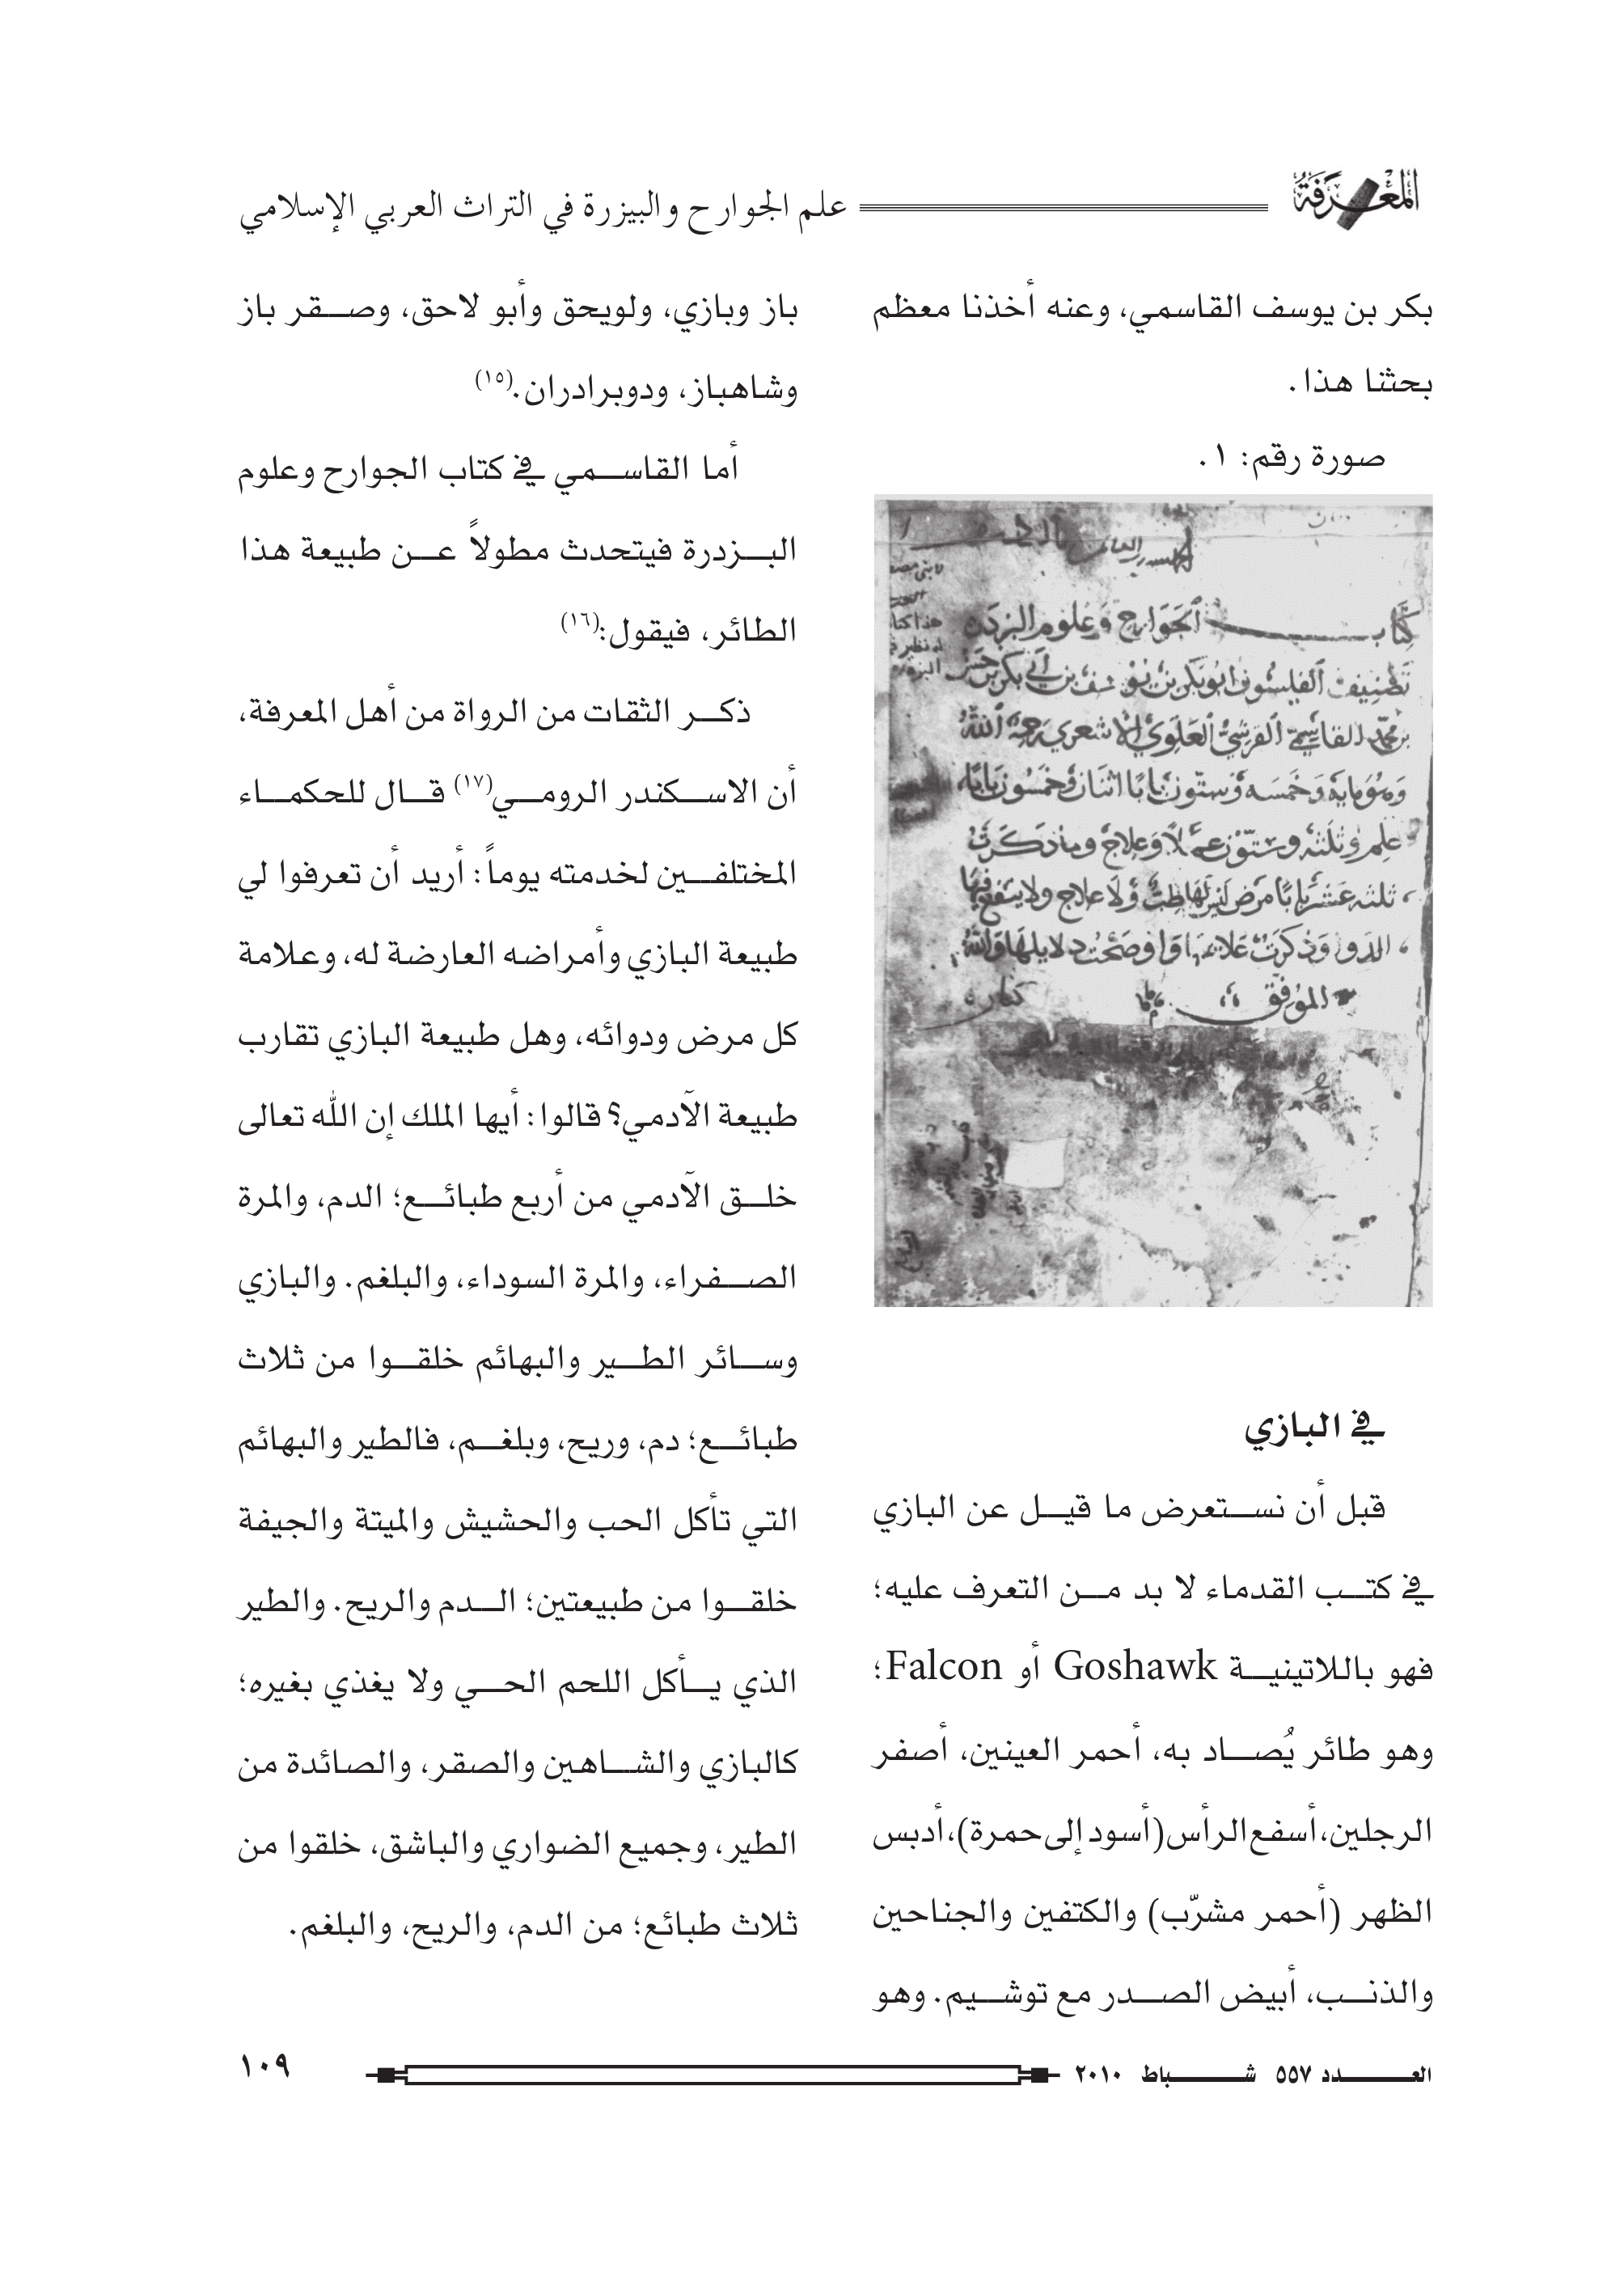 المعرفة
علم الجوارح والبيزرة في التراث العربي الإسلامي
بكر بن يوسف القاسمي، وعنه أخذنا معظم
بحثنا هذا.
صورة رقم: ١.
كتاب الجوارح وعلوم البزدره
تصنيف الفيلسوف ابو بكر بن يوسف بن أبي بكر بن حسن
بن محمد القاسمي القرشي العلوي الاشعري رحمه الله
وهو مايه وخمسه وستون بابا اثنان وخمسون بابا
علم وثلثه وستون عملا وعلاج وما ذكرت
ثلثه عشر بابا مرض ليس لها طب ولا علاج ولا ينفع فيها
الدوا وذكرت علاماتها
الموفق
في البازي
قبل أن نستعرض ما قيل عن البازي
في كتب القدماء لا بد من التعرف عليه؛
فهو باللاتينية Goshawk أو Falcon؛
وهو طائر يُصاد به، أحمر العينين، أصفر
الرجلين، أسفع الرأس (أسود إلى حمرة)، أدبس
الظهر (أحمر مشرّب) والكتفين والجناحين
والذنب، أبيض الصدر مع توشيم. وهو
باز وبازي، ولويحق وأبو لاحق، وصقر باز
وشاهباز، ودوبرادران.(١٥)
أما القاسمي في كتاب الجوارح وعلوم
البزدرة فيتحدث مطولاً عن طبيعة هذا
الطائر، فيقول:(١٦)
ذكر الثقات من الرواة من أهل المعرفة،
أن الاسكندر الرومي(١٧) قال للحكماء
المختلفين لخدمته يوماً: أريد أن تعرفوا لي
طبيعة البازي وأمراضه العارضة له، وعلامة
كل مرض ودوائه، وهل طبيعة البازي تقارب
طبيعة الآدمي؟ قالوا: أيها الملك إن الله تعالى
خلق الآدمي من أربع طبائع؛ الدم، والمرة
الصفراء، والمرة السوداء، والبلغم. والبازي
وسائر الطير والبهائم خلقوا من ثلاث
طبائع؛ دم، وريح، وبلغم، فالطير والبهائم
التي تأكل الحب والحشيش والميتة والجيفة
خلقوا من طبيعتين؛ الدم والريح. والطير
الذي يأكل اللحم الحي ولا يغذي بغيره؛
كالبازي والشاهين والصقر، والصائدة من
الطير، وجميع الضواري والباشق، خلقوا من
ثلاث طبائع؛ من الدم، والريح، والبلغم.
العدد ٥٥٧ شباط ٢٠١٠
١٠٩